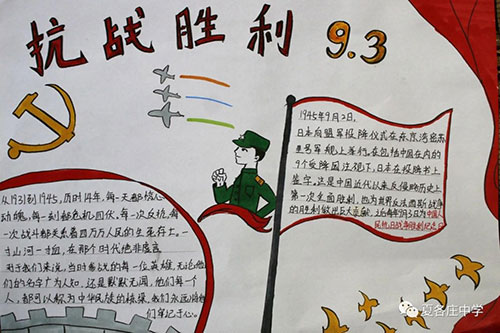 抗战胜利 9.3
1945年9月2日,
日本向盟军投降仪式在东京湾密苏
里号军舰上举行,在包括中国在内的
9个受降国注视下,日本在投降书上
签字。这是中国近代以来反侵略历史上
第一次全面胜利,也为世界反法西斯战争
的胜利做出巨大贡献,每年9月3日为中国人
民抗日战争胜利纪念日
从1931到1945,历时14年,每一天都惊心
动魄,每一刻都危机四伏,每一次反抗,每
一次战斗都关系着四万万人民的生死存亡。一
寸山河一寸血,在那个时代绝非虚言
对于我们来说,当时奋战的每一位英雄,无论他
们的名字广为人知,还是默默无闻,他们每一个
人,都可以称为中华民族的脊梁,我们永远将他
们牢记于心。
夏各庄中学